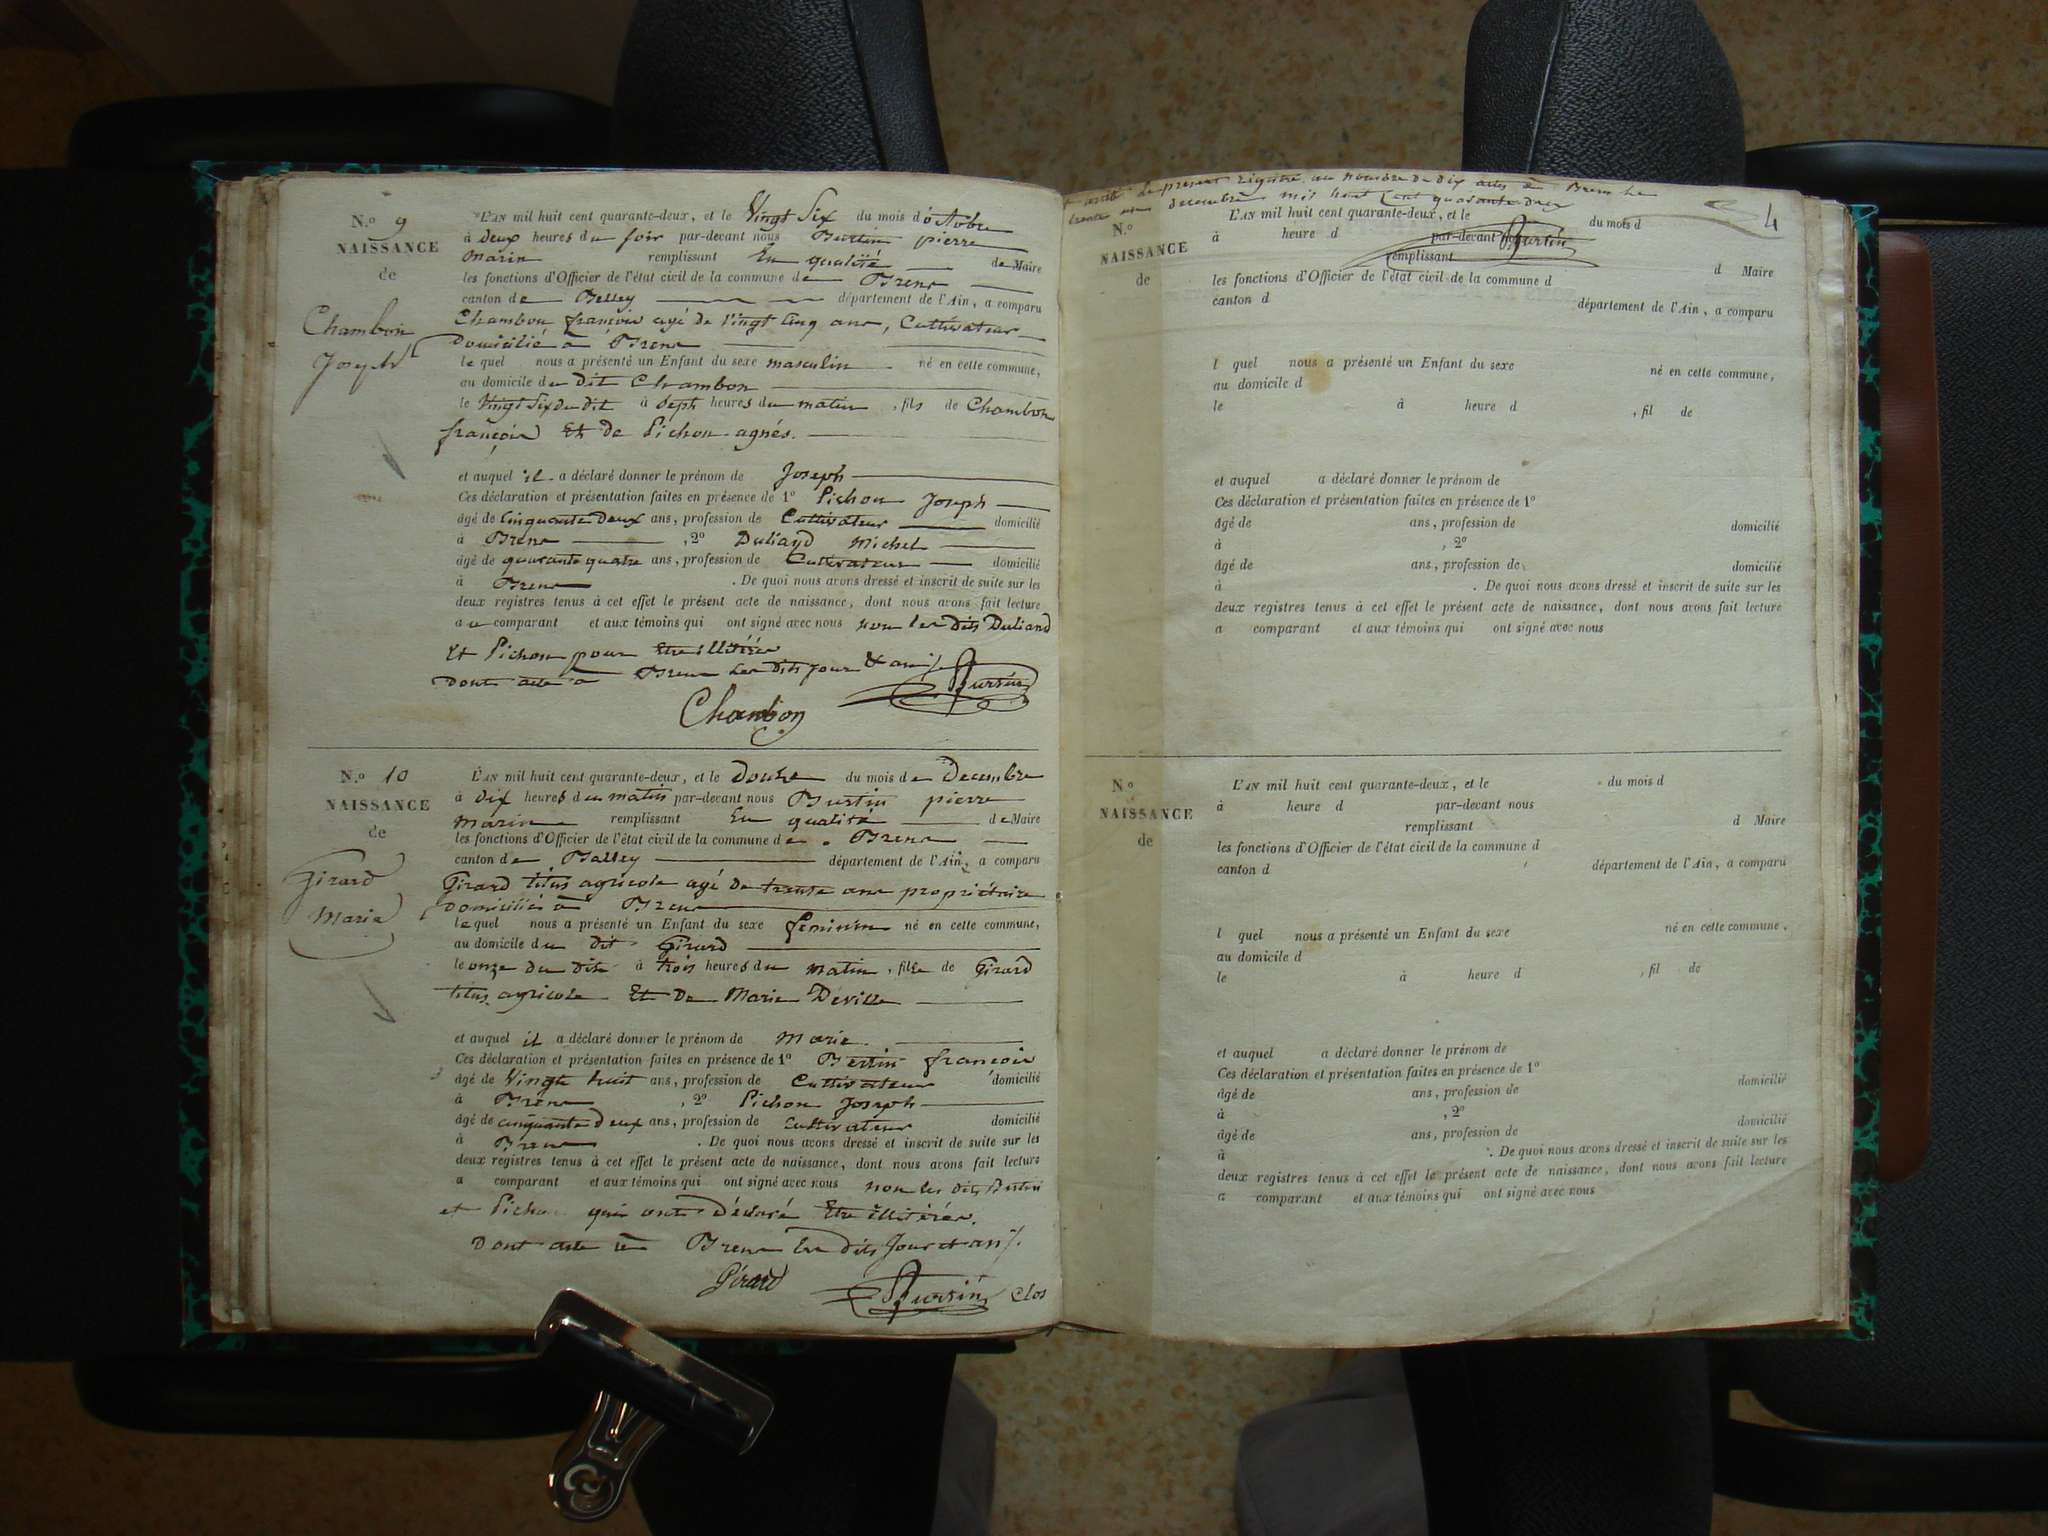 N.o 9
NAISSANCE
de
Chambon
Joseph
L'AN mil huit cent quarante-deux, et le Vingt Six du mois d'octobre
à deux heures du soir par-devant nous Burtin pierre
Marin remplissant En qualité de Maire
les fonctions d'Officier de l'état civil de la commune de Brens
canton de Belley département de l'Ain, a comparu
Chambon françois agé de Vingt Cinq ans, Cultivateur
Domicilié à Brens
lequel nous a présenté un Enfant du sexe masculin né en cette commune,
au domicile du dit Chambon
le Vingt Six du dit à Seph heures du matin, fils de Chambon
françois Et de Pichon agnés.
et auquel il a déclaré donner le prénom de Joseph
Ces déclaration et présentation faites en présence de 1o Pichon Joseph
âgé de Cinquante Deux ans, profession de Cultivateur domicilié
à Brens , 2o Duliand Michel
âgé de quarante quatre ans, profession de Cultivateur domicilié
à Brens . De quoi nous avons dressé et inscrit de suite sur les
deux registres tenus à cet effet le présent acte de naissance, dont nous avons fait lecture
au comparant et aux témoins qui ont signé avec nous non les dits Duliand
Et Pichon pour Etre illitérés
Dont acte à Brens Les dits jour & an
Burtin
Chambon
N.o 10
NAISSANCE
de
Girard
Marie
L'AN mil huit cent quarante-deux, et le Douze du mois de Decembre
à dix heures du matin par-devant nous Burtin pierre
Marin remplissant En qualité de Maire
les fonctions d'Officier de l'état civil de la commune de Brens
canton de Belley département de l'Ain, a comparu
Girard titus agricole agé de trente ans propriétaire
Domicilié à Brens
lequel nous a présenté un Enfant du sexe feminin né en cette commune,
au domicile du dit Girard
le onze du dit à trois heures du matin, fille de Girard
titus agricole Et De Marie Deville
et auquel il a déclaré donner le prénom de Marie.
Ces déclaration et présentation faites en présence de 1o Bertin françois
âgé de Vingt huit ans, profession de Cultivateur domicilié
à Brens , 2o Pichon Joseph
âgé de cinquante deux ans, profession de Cultivateur domicilié
à Brens . De quoi nous avons dressé et inscrit de suite sur les
deux registres tenus à cet effet le présent acte de naissance, dont nous avons fait lecture
a comparant et aux témoins qui ont signé avec nous non les dits Bertin
et Pichon qui ont Déclaré Etre illitérés.
Dont acte à Brens Les dits Jour et an
Girard
Burtin Clos
le present registre au nombre de dix actes à Brens Le
trente un decembre mil huit Cent quarante deux
4
Burtin
N.o
NAISSANCE
de
L'AN mil huit cent quarante-deux, et le du mois d
à heure d par-devant nous
remplissant d Maire
les fonctions d'Officier de l'état civil de la commune d
canton d département de l'Ain, a comparu
l quel nous a présenté un Enfant du sexe né en cette commune,
au domicile d
le à heure d , fil de
et auquel a déclaré donner le prénom de
Ces déclaration et présentation faites en présence de 1o
âgé de ans, profession de domicilié
à , 2o
âgé de ans, profession de domicilié
à . De quoi nous avons dressé et inscrit de suite sur les
deux registres tenus à cet effet le présent acte de naissance, dont nous avons fait lecture
a comparant et aux témoins qui ont signé avec nous
N.o
NAISSANCE
de
L'AN mil huit cent quarante-deux, et le du mois d
à heure d par-devant nous
remplissant d Maire
les fonctions d'Officier de l'état civil de la commune d
canton d département de l'Ain, a comparu
l quel nous a présenté un Enfant du sexe né en cette commune,
au domicile d
le à heure d , fil de
et auquel a déclaré donner le prénom de
Ces déclaration et présentation faites en présence de 1o
âgé de ans, profession de domicilié
à , 2o
âgé de ans, profession de domicilié
à . De quoi nous avons dressé et inscrit de suite sur les
deux registres tenus à cet effet le présent acte de naissance, dont nous avons fait lecture
a comparant et aux témoins qui ont signé avec nous